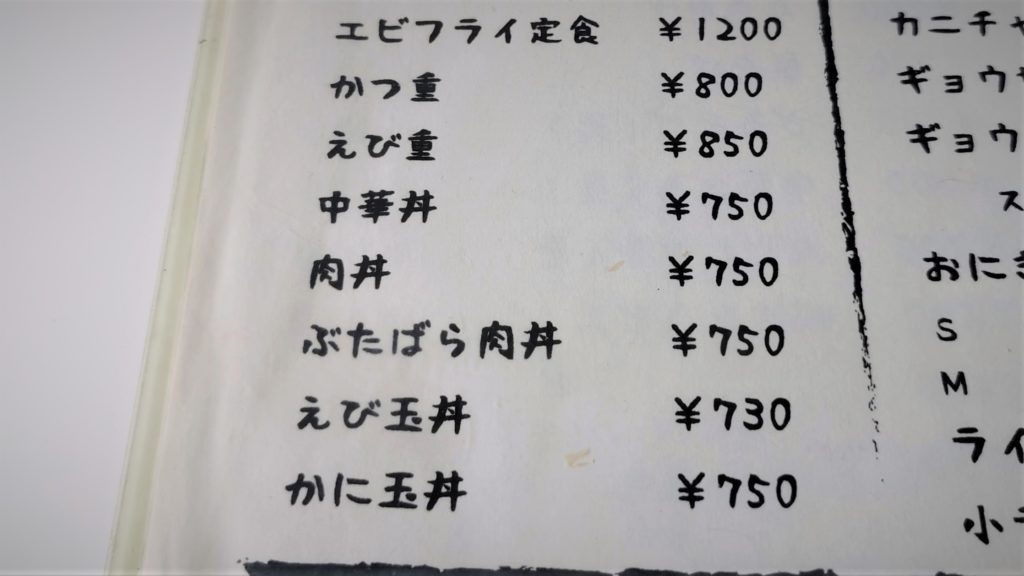 エビフライ定食 ¥1200
かつ重 ¥800
えび重 ¥850
中華丼 ¥750
肉丼 ¥750
ぶたばら肉丼 ¥750
えび玉丼 ¥730
かに玉丼 ¥750
カニチャ
ギョウ
ギョウ
ス
おにぎ
S
M
ライ
小